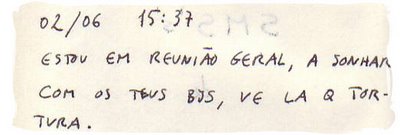 02/06 15:37
ESTOU EM REUNIÃO GERAL, A SONHAR
COM OS TEUS BJS, VE LA Q TOR-
TURA.